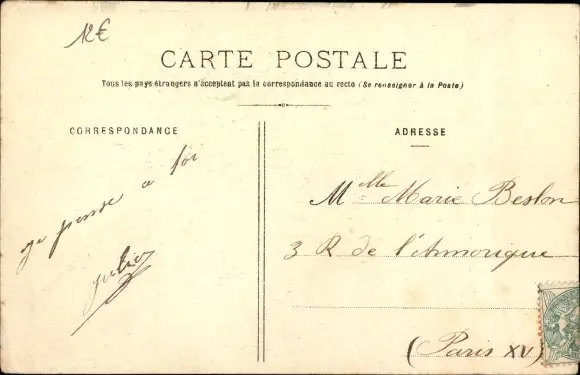 12€
CARTE POSTALE
Tous les pays étrangers n'acceptent pas la correspondance au recto (Se renseigner à la Poste)
CORRESPONDANCE
ADRESSE
je pense a toi
Julien
Mlle Marie Beslon
3 R de l'Armorique
(Paris XV)